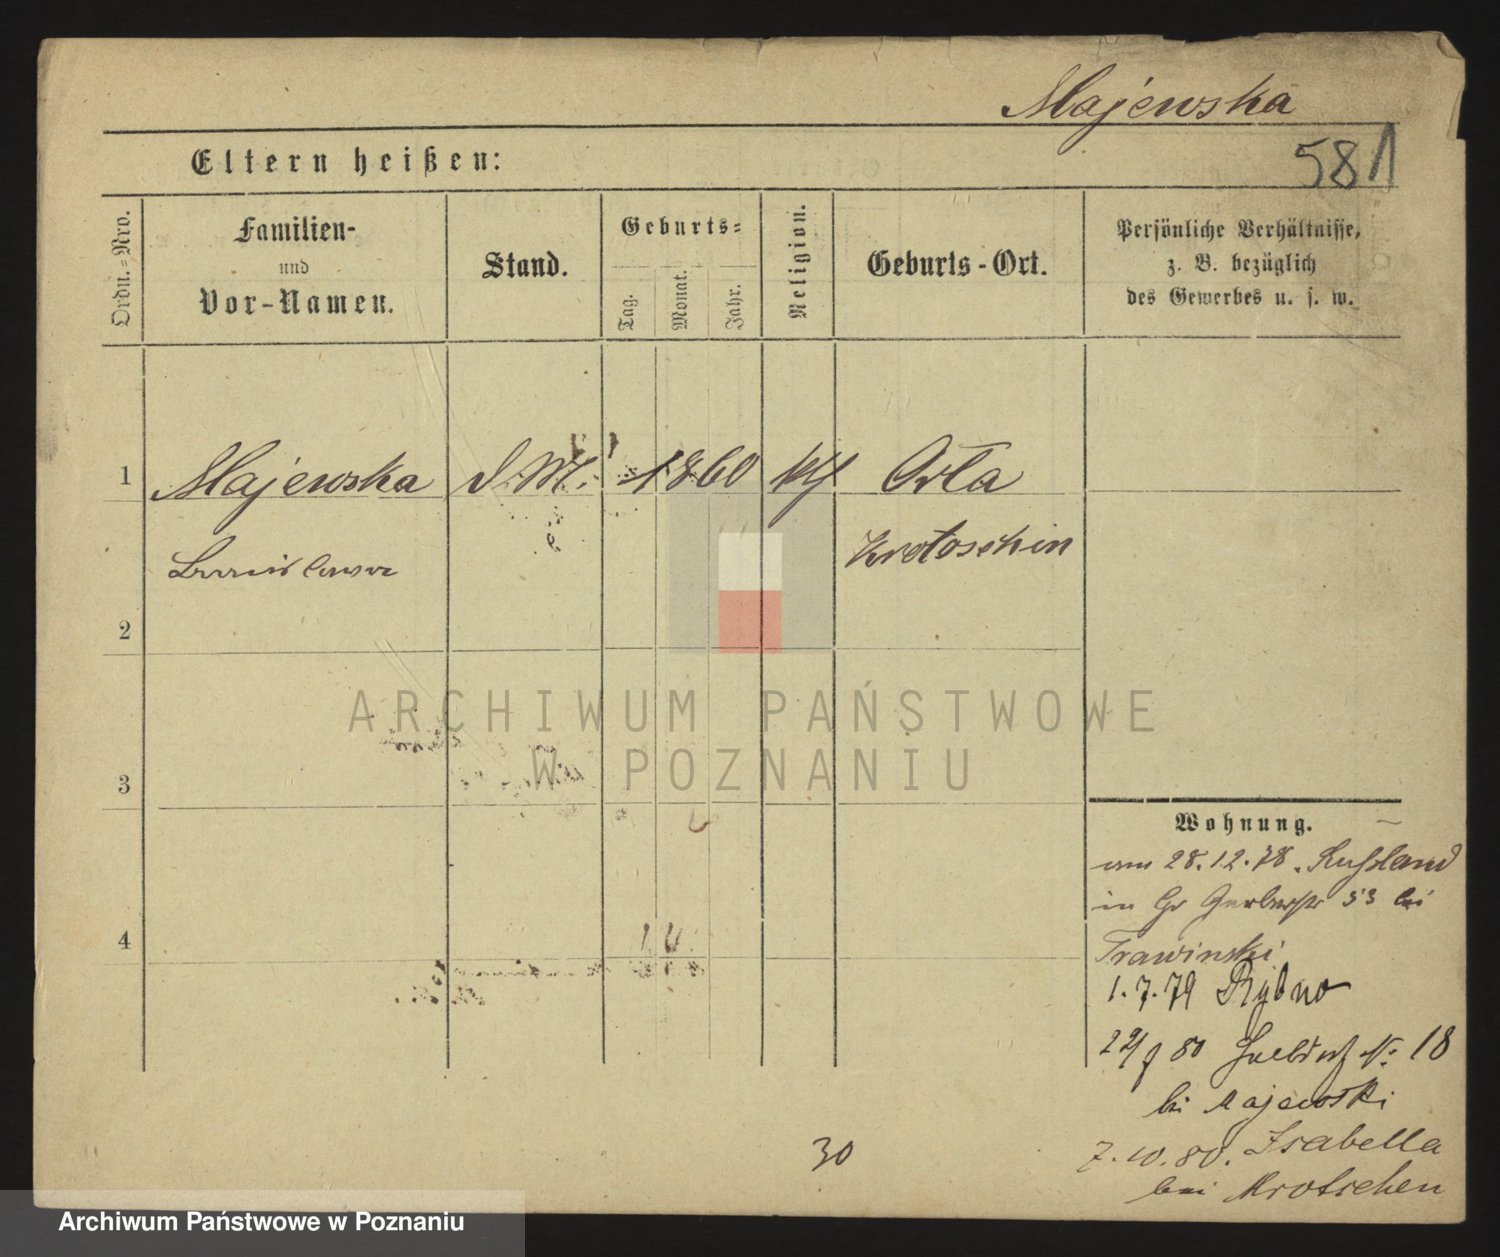 Majewska
581
Eltern heißen:
Ordn.=Nro.
Familien-
und
Vor-Namen.
Stand.
Geburts=
Tag.
Monat.
Jahr.
Religion.
Geburts-Ort.
Persönliche Verhältnisse,
z. B. bezüglich
des Gewerbes u. s. w.
1
Majewska
1860
kth
Orla
Bronislawa
Krotoschin
2
ARCHIWUM PAŃSTWOWE
W POZNANIU
3
Wohnung.
am 28.12.78. Russland
in Gr Gerberstr 33 bei
4
Trawinski
1.7.79 Rybno
80 No 18
bei Majewski
7.10.80. Isabella
bei Mrotschen
30
Archiwum Państwowe w Poznaniu